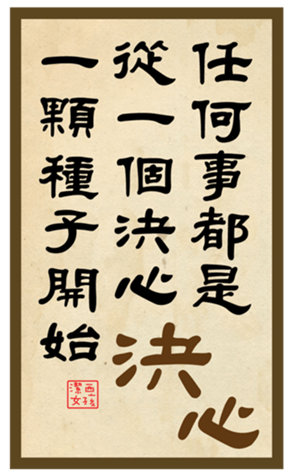 任何事都是
從一個決心
一顆種子開始
決心
西孩
潔女